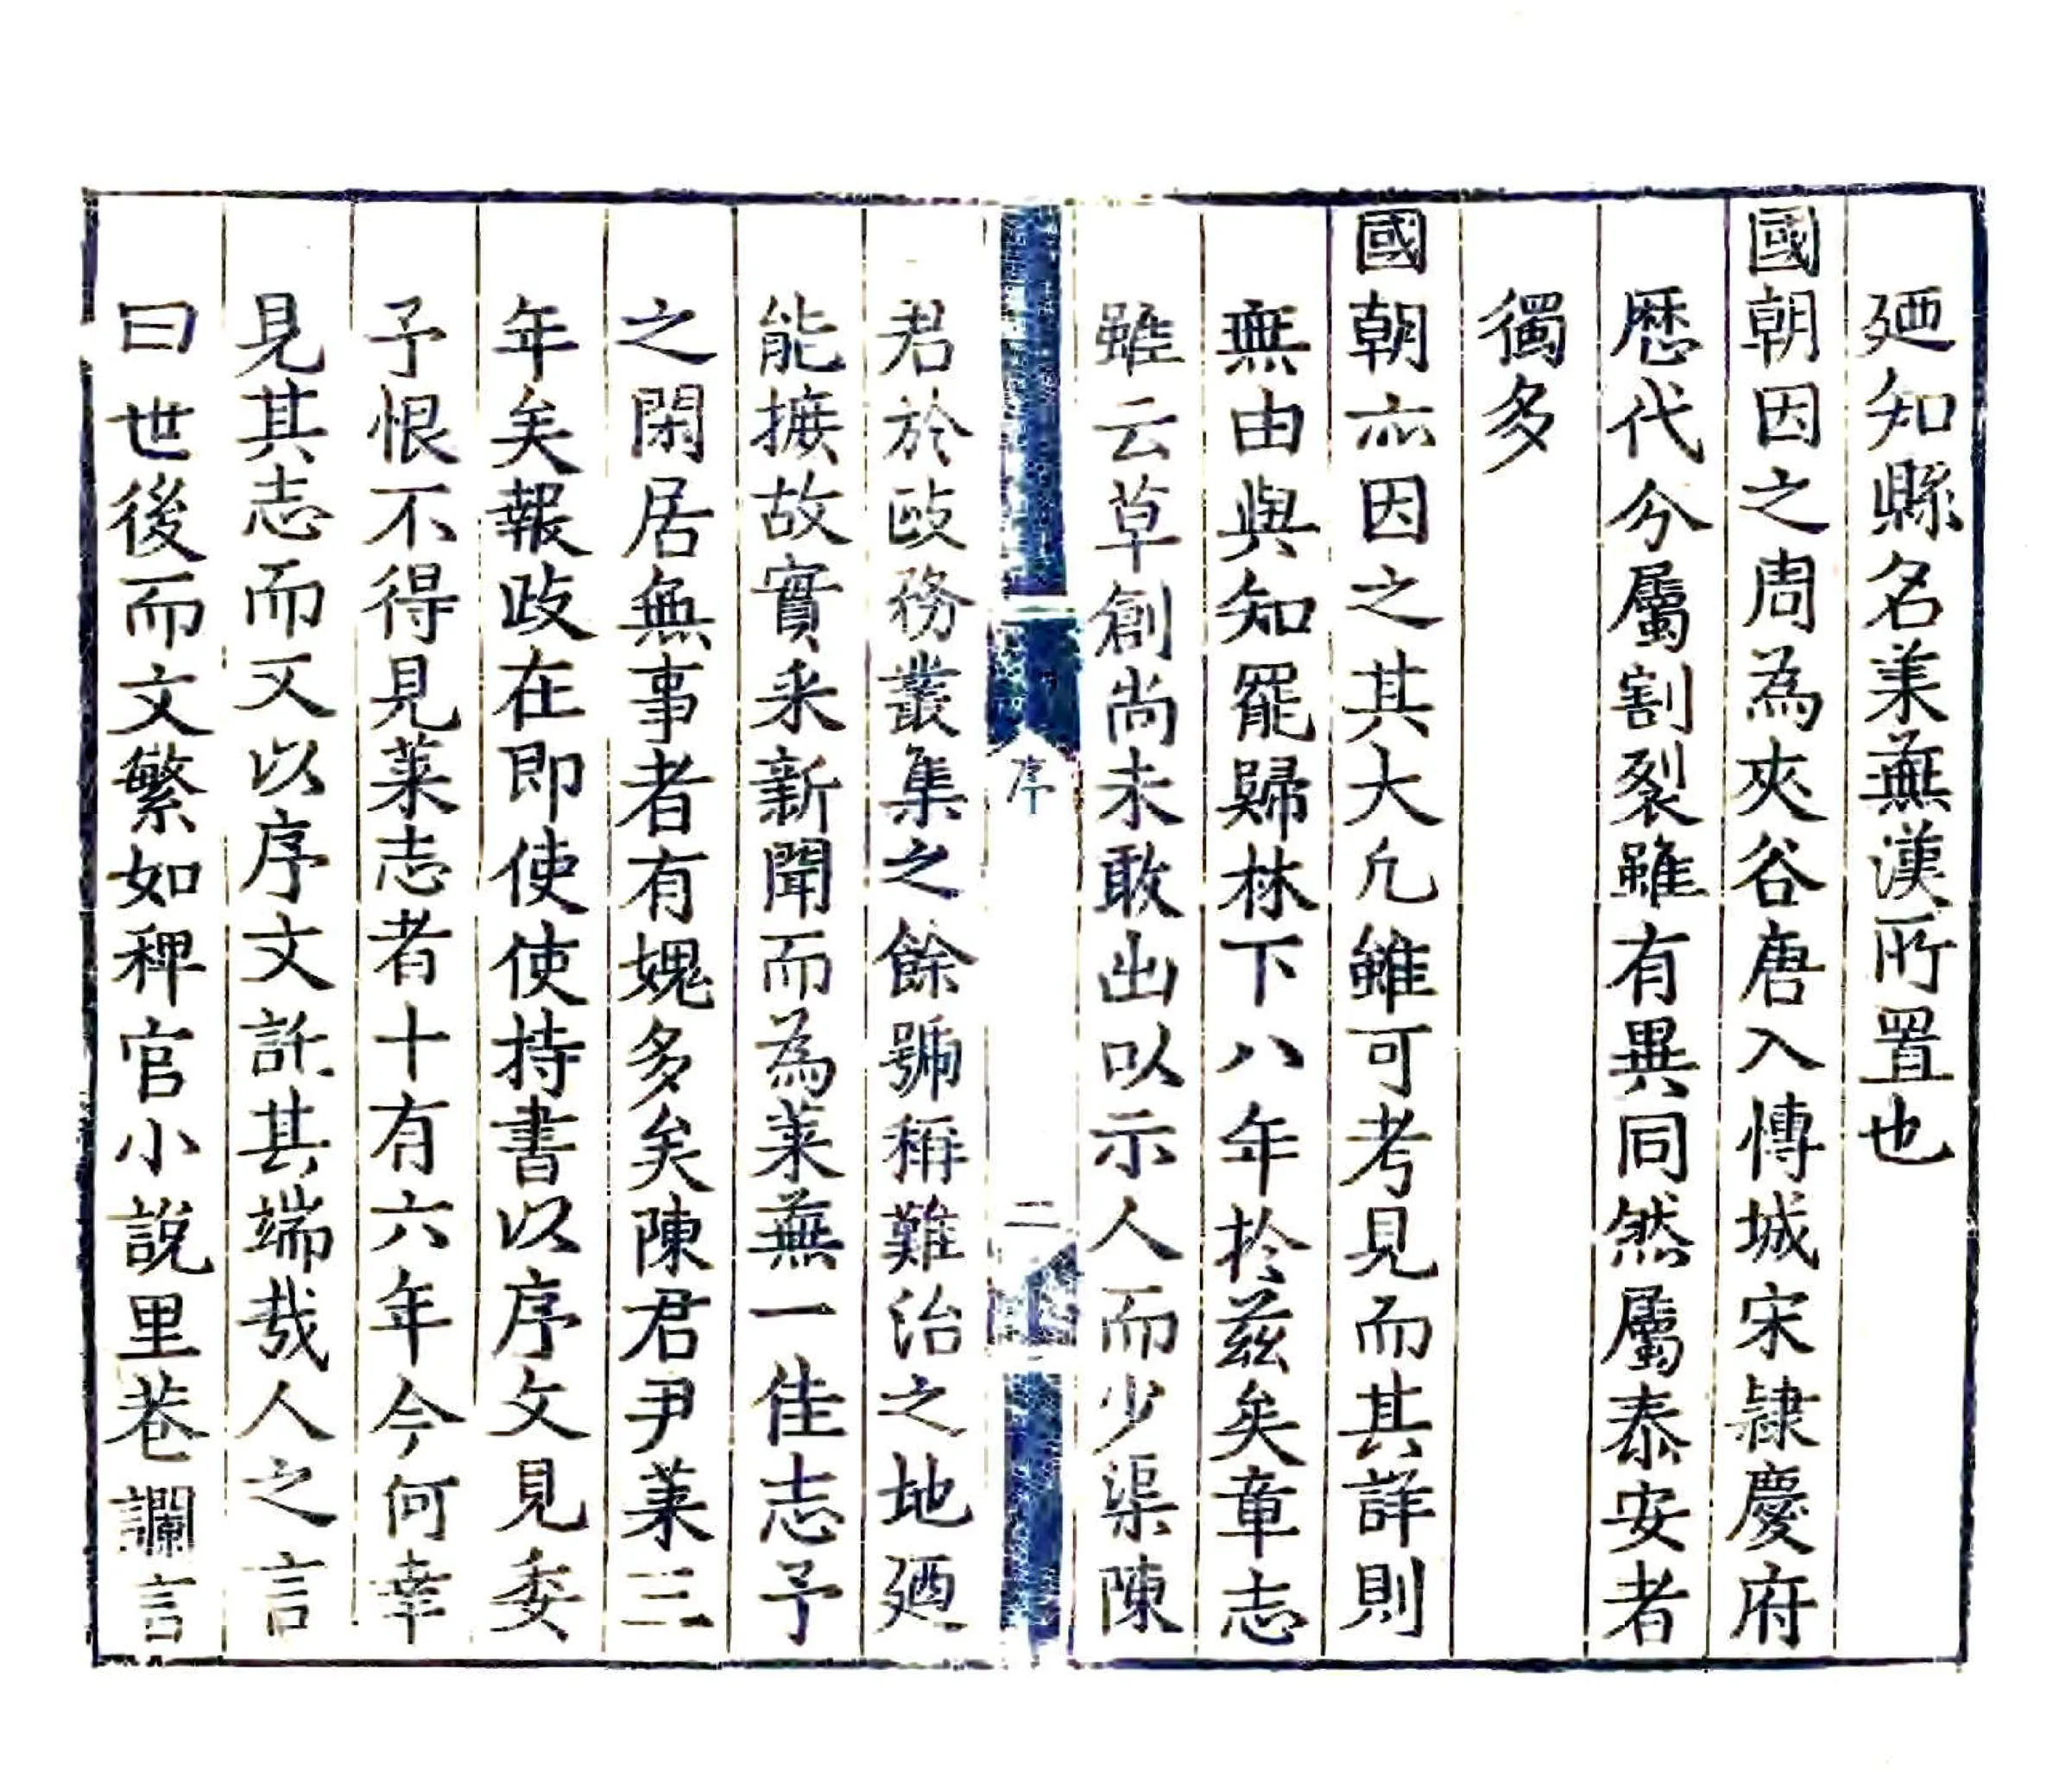 廼知縣名萊蕪漢所置也
國朝因之周為夾谷唐入愽城宋隷慶府
歴代分屬割裂雖有異同然屬泰安者
獨多
國朝亦因之其大凡雖可考見而其詳則
無由與知罷歸林下八年扵兹矣章志
雖云草創尚未敢出以示人而少渠陳
序
二
君於政務叢集之餘號稱難治之地廼
能摭故實采新聞而為萊蕪一佳志予
之閑居無事者有媿多矣陳君尹萊三
年矣報政在即使使持書以序文見委
予恨不得見萊志者十有六年今何幸
見其志而又以序文託其端哉人之言
曰世後而文繁如稗官小說里巷讕言